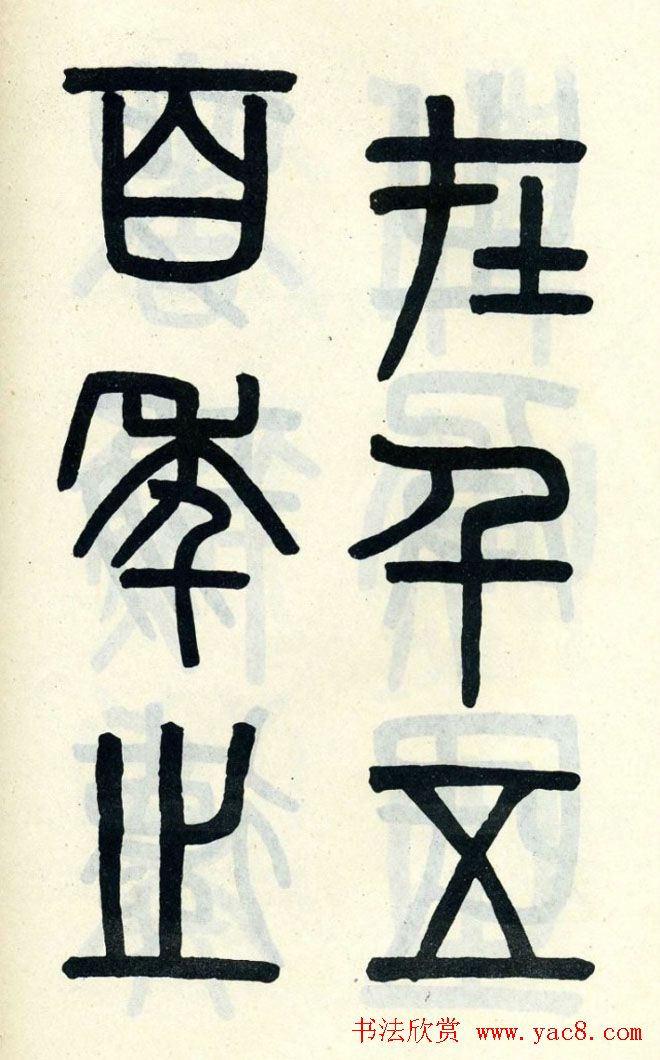 在千五
百年之
书法欣赏 www.yac8.com